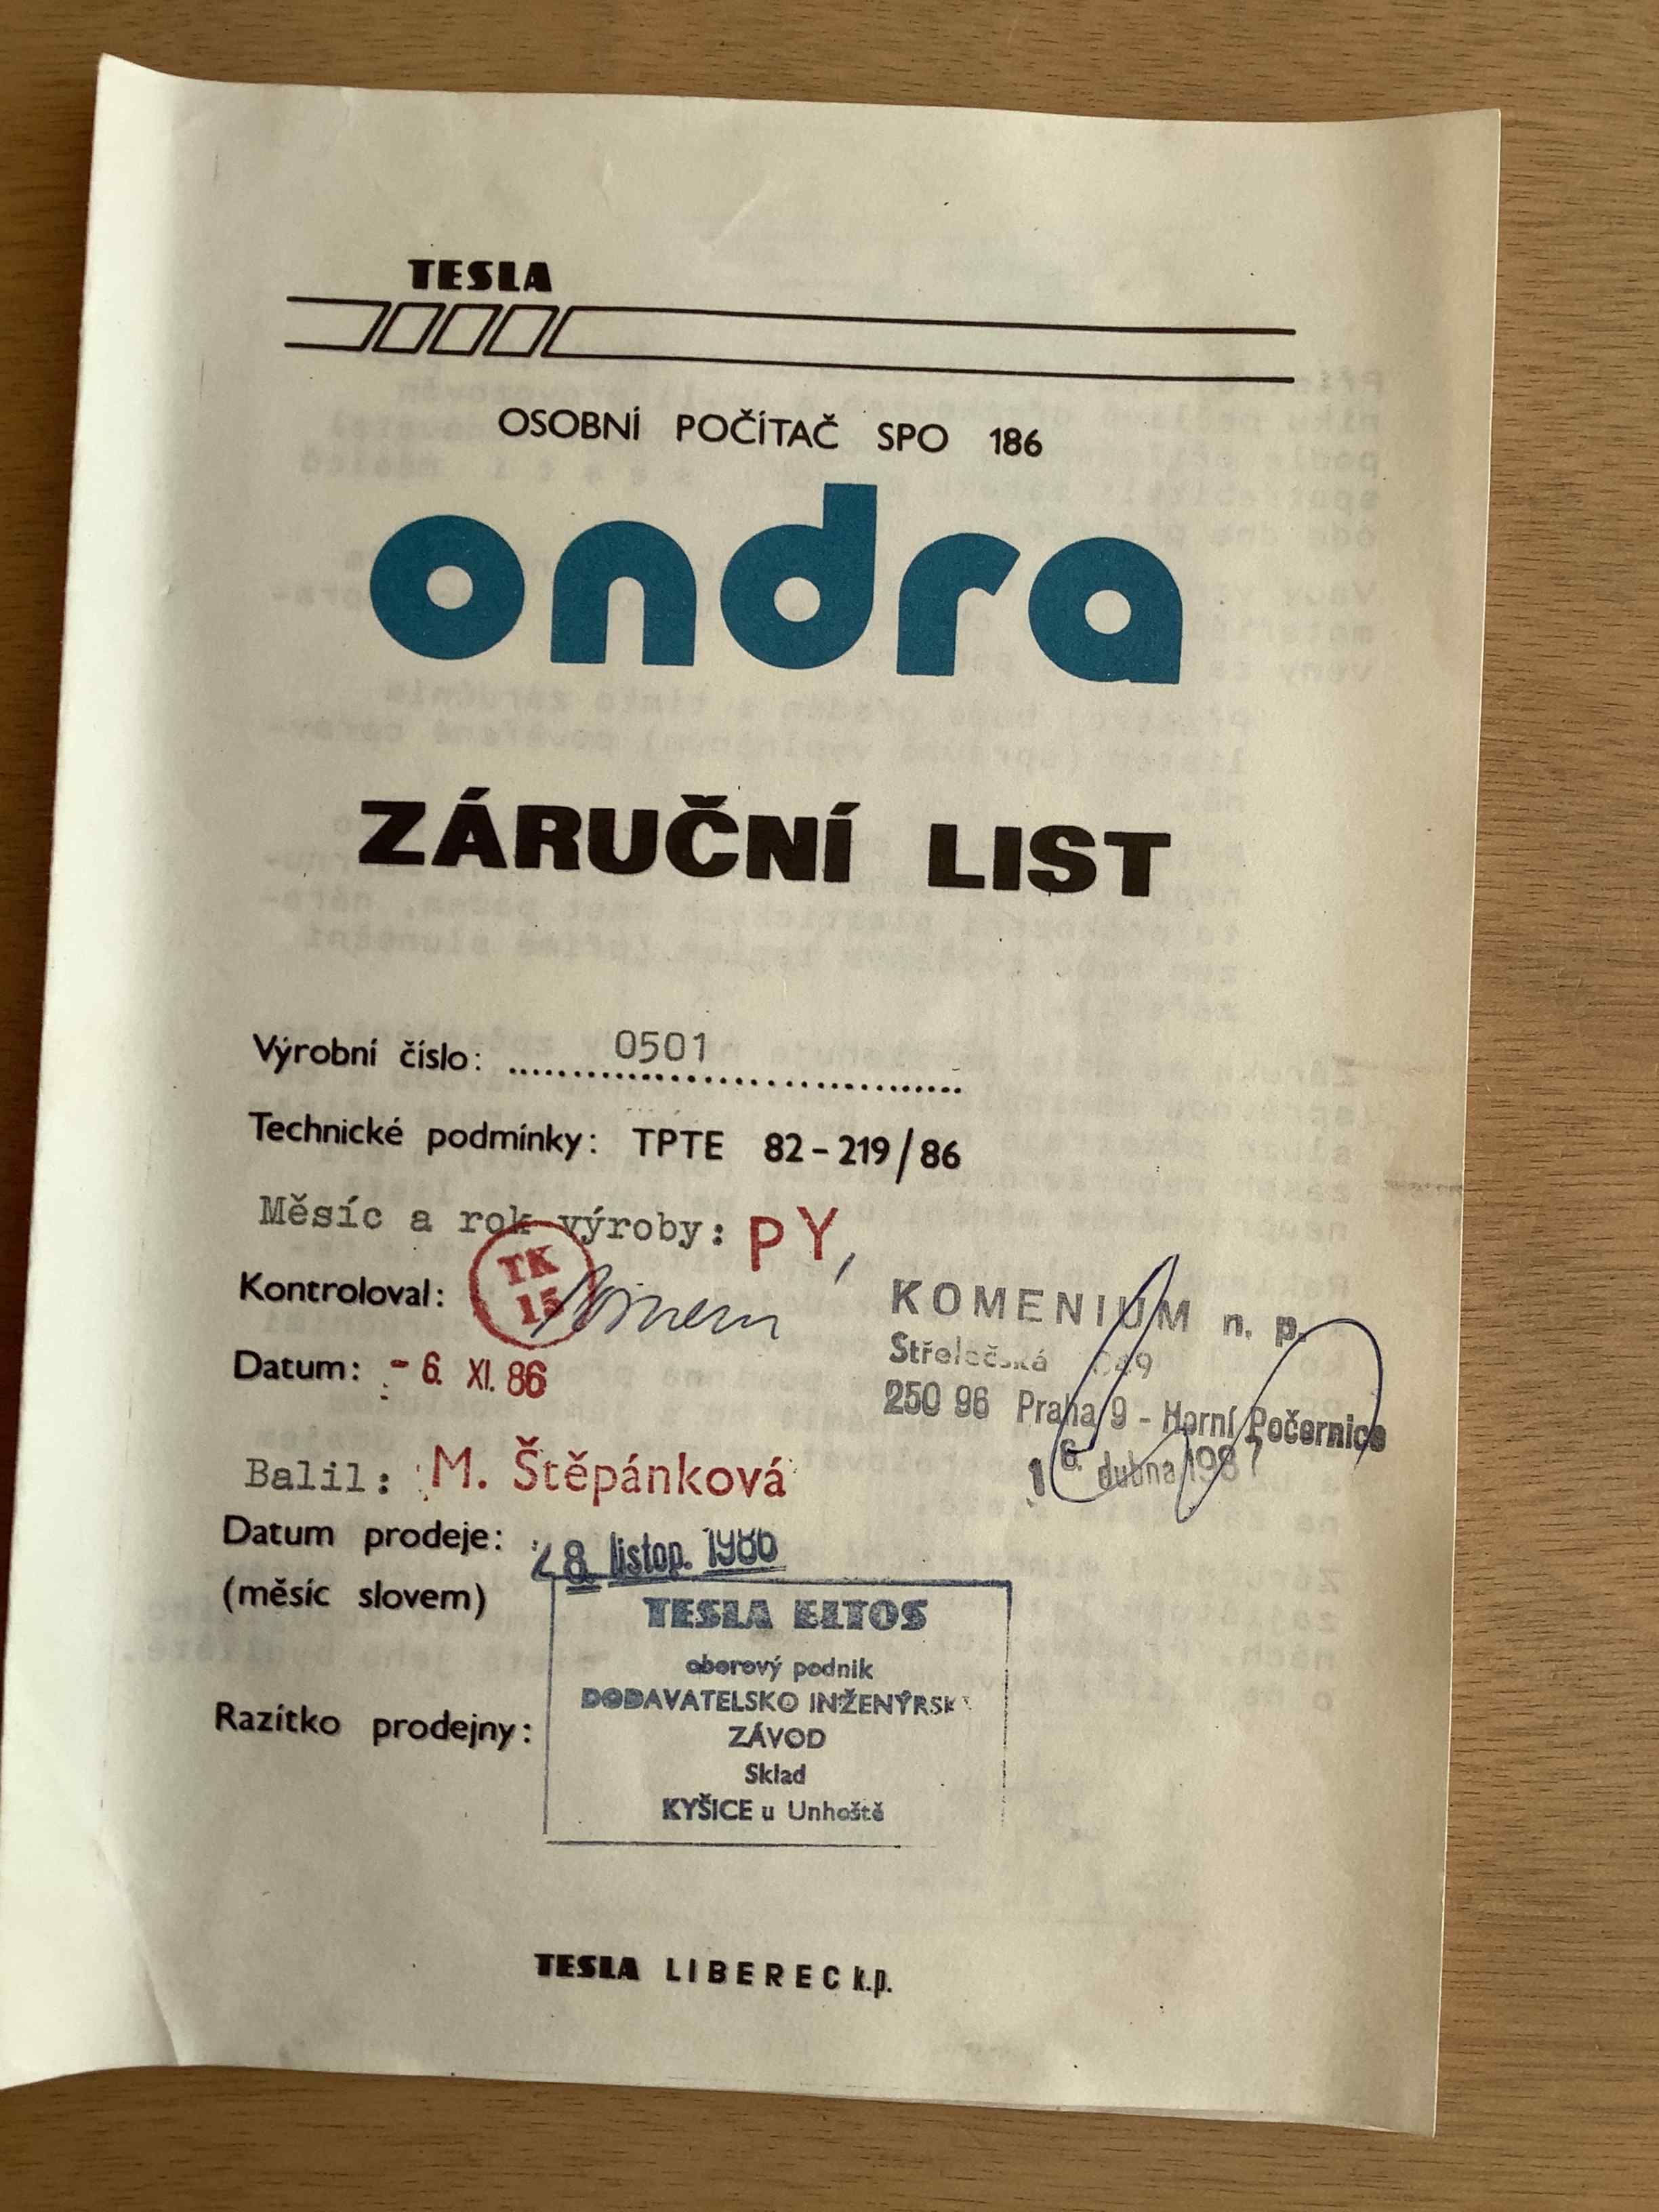 TESLA
OSOBNÍ POČÍTAČ SPO 186
ondra
ZÁRUČNÍ LIST
Výrobní číslo: 0501
Technické podmínky: TPTE 82-219/86
Měsíc a rok výroby: PY,
Kontroloval: TK 15
Datum: - 6. XI. 86
KOMENIUM n. p.
Střelečská
250 96 Praha 9 - Horní Počernice
16. dubna 1987
Balil: M. Štěpánková
Datum prodeje: 28. listop. 1986
(měsíc slovem)
Razítko prodejny:
TESLA ELTOS
oborový podnik
DODAVATELSKO INŽENÝRSK
ZÁVOD
Sklad
KYŠICE u Unhoště
TESLA LIBEREC k.p.